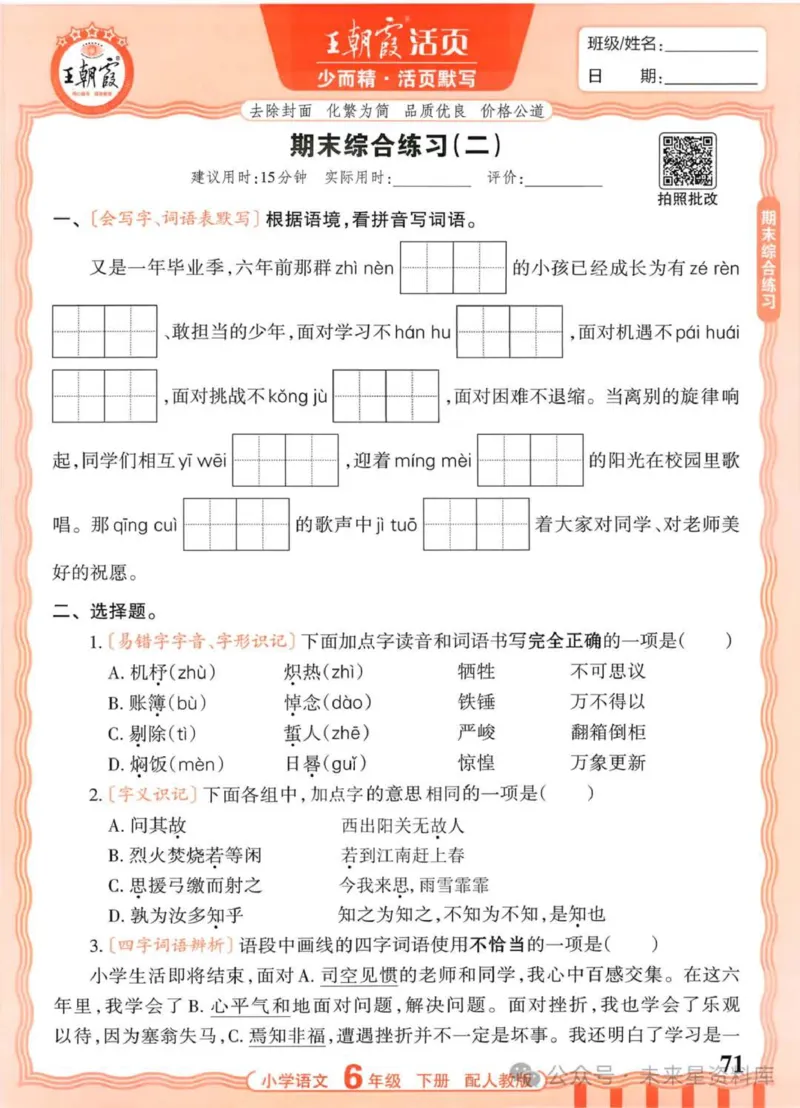 王朝霞
王朝霞®活页
少而精·活页默写
班级/姓名:
日 期:
去除封面 化繁为简 品质优良 价格公道
期末综合练习(二)
建议用时:15分钟 实际用时: 评价:
拍照批改
期末综合练习
一、[会写字、词语表默写]根据语境,看拼音写词语。
又是一年毕业季,六年前那群zhì nèn 的小孩已经成长为有zé rèn
、敢担当的少年,面对学习不hán hu ,面对机遇不pái huái
,面对挑战不kǒng jù ,面对困难不退缩。当离别的旋律响
起,同学们相互yī wēi ,迎着míng mèi 的阳光在校园里歌
唱。那qīng cuì 的歌声中jì tuō 着大家对同学、对老师美
好的祝愿。
二、选择题。
1.[易错字字音、字形识记]下面加点字读音和词语书写完全正确的一项是( )
A. 机杼(zhù) 炽热(zhì) 牺牲 不可思议
B. 账簿(bù) 悼念(dào) 铁锤 万不得以
C. 剔除(tì) 蜇人(zhē) 严峻 翻箱倒柜
D. 焖饭(mèn) 日晷(guǐ) 惊惶 万象更新
2.[字义识记]下面各组中,加点字的意思相同的一项是( )
A. 问其故 西出阳关无故人
B. 烈火焚烧若等闲 若到江南赶上春
C. 思援弓缴而射之 今我来思,雨雪霏霏
D. 孰为汝多知乎 知之为知之,不知为不知,是知也
3.[四字词语辨析]语段中画线的四字词语使用不恰当的一项是( )
小学生活即将结束,面对A. 司空见惯的老师和同学,我心中百感交集。在这六
年里,我学会了B. 心平气和地面对问题,解决问题。面对挫折,我也学会了乐观
以待,因为塞翁失马,C. 焉知非福,遭遇挫折并不一定是坏事。我还明白了学习是一
71
小学语文 6年级 下册 配人教版
公众号·未来星资料库